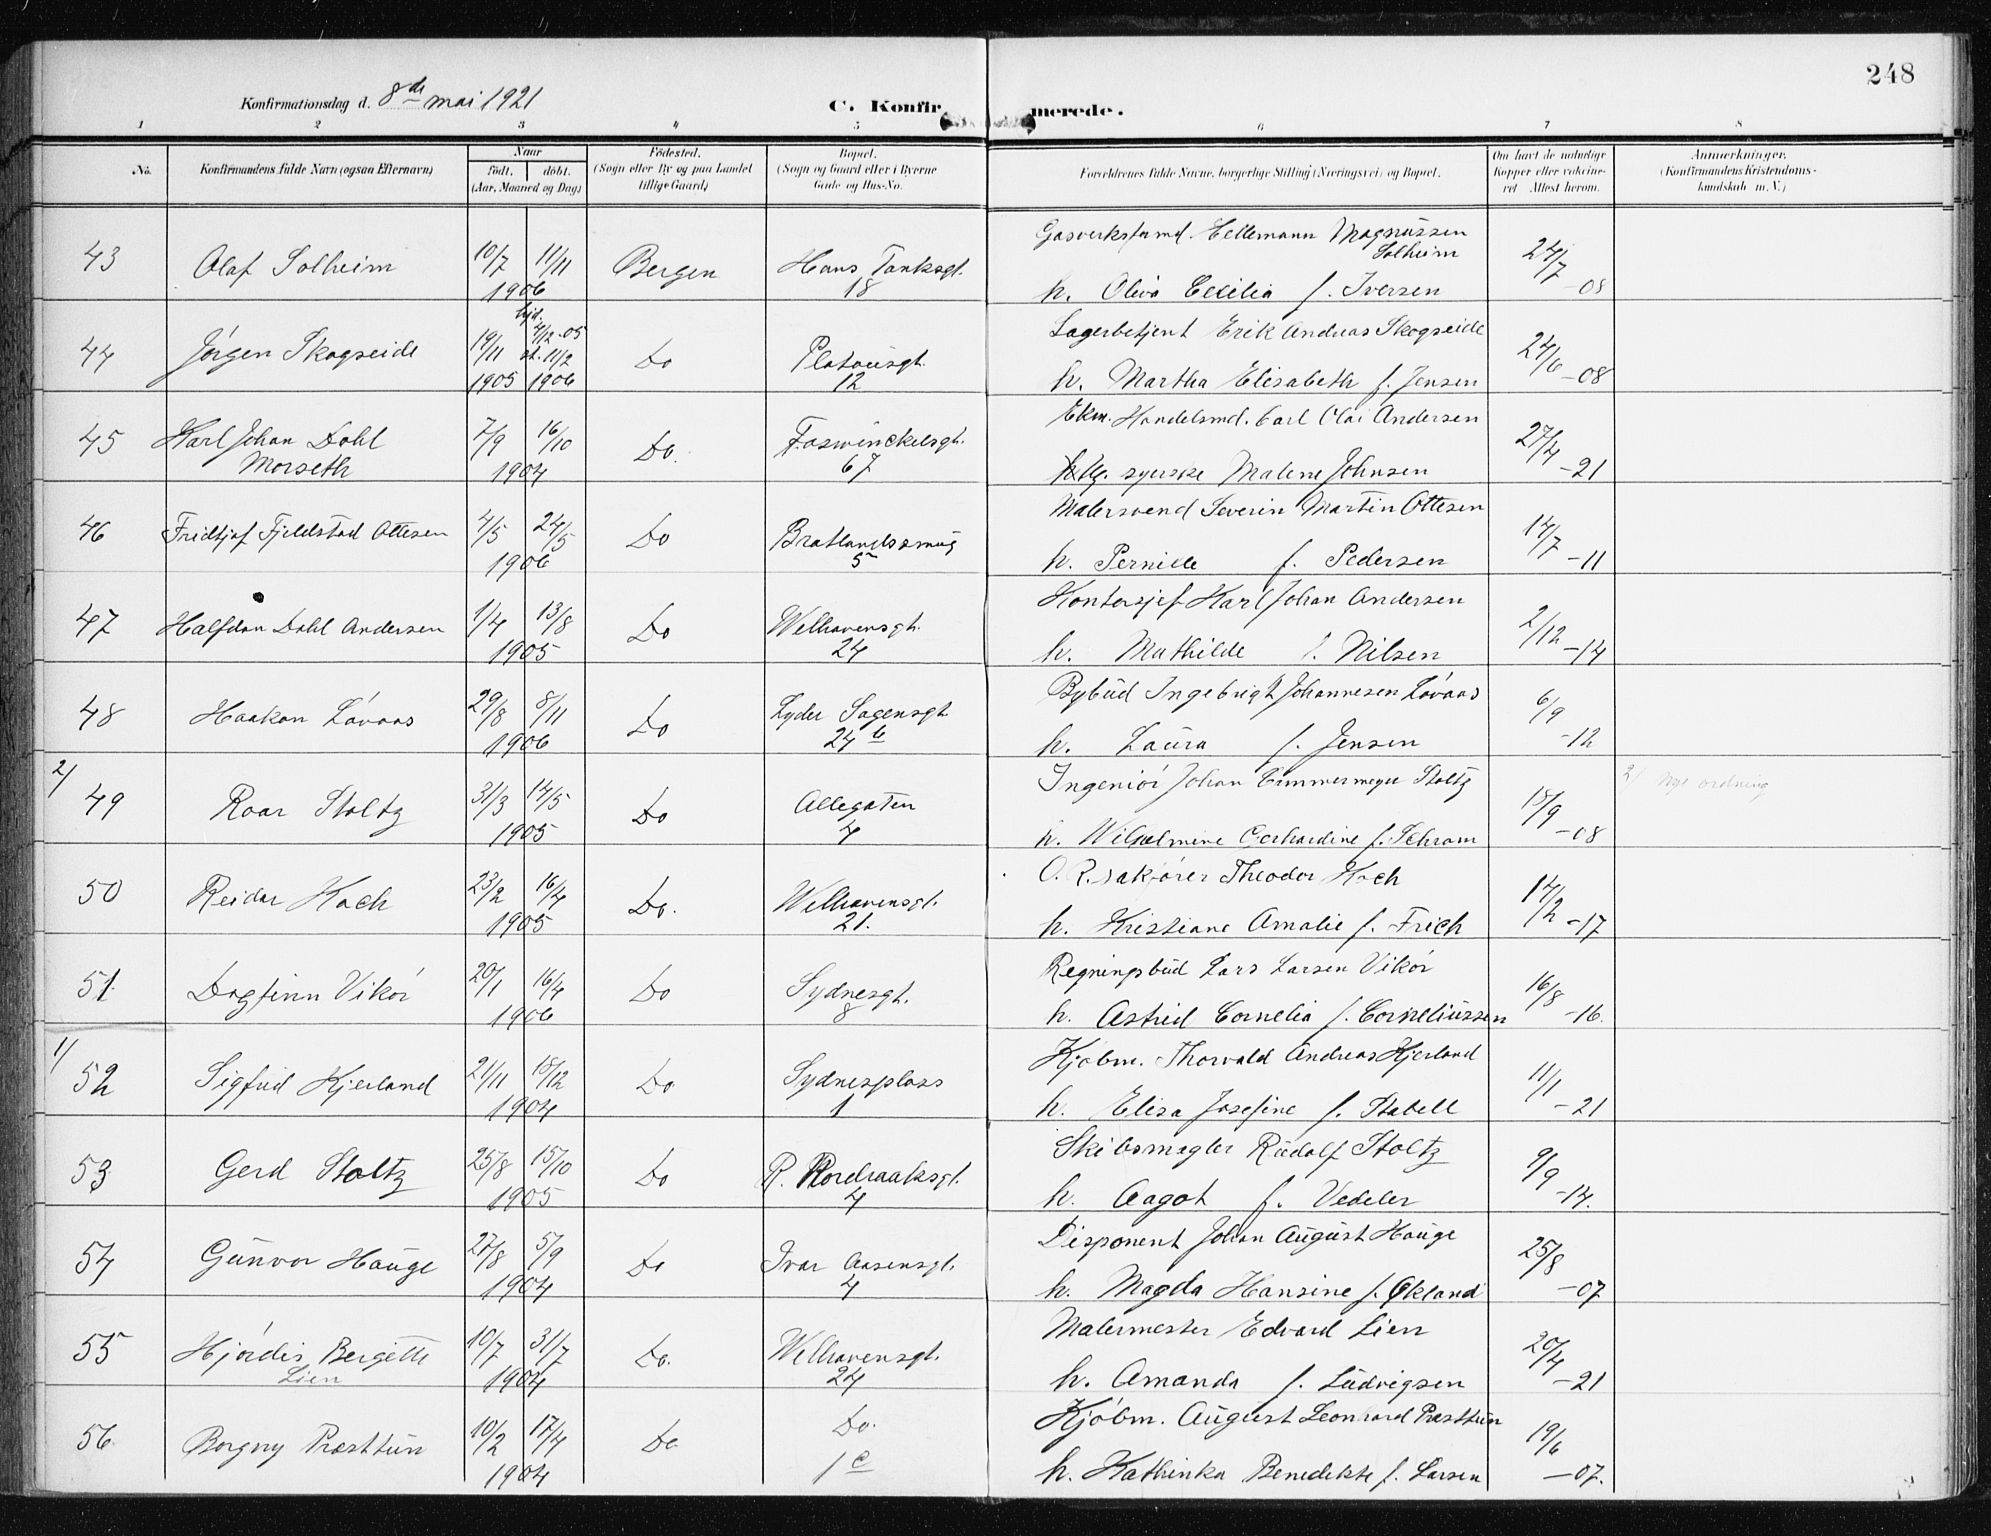 248
Konfirmationsdag d. 8de mai 1921
C. Konfir merede.
1 2 3 4 5 6 7 8
No. Konfirmandens fulde Navn (ogsaa Efternavn) Naar født. døbt. (Aar, Maaned og Dag) Fødested. (Sogn eller By og paa Landet tillige Gaard) Bopæl. (Sogn og Gaard eller i Byerne Gade og Hus-No. Forældrenes fulde Navne, borgerlige Stilling (Næringsvei) og Bopæl. Om havt de naturlige Kopper eller vakcineret Attest herom. Anmærkninger. (Konfirmandens Kristendomskundskab m. V.)
Gasverksformd. Eellemann Magnussen
Solheim
43 Olaf Solheim 10/7 11/11 Bergen Hans Tanksgt. 24/7
1906 18 h. Oliva Cecilia f. Iversen -08
hjd. 4/12-05 Lagerbetjent Erik Andreas Skogseide
44 Jørgen Skogseide 19/11 st. 11/2 Do Platousgt. 24/6
1905 1906 12 h. Martha Elisabeth f. Jensen -08
Ekm. Handelsmd. Carl Olai Andersen
45 Karl Johan Dahl 7/9 16/10 Do. Foswinckelsgt. 27/4
Morseth 1904 67 Ug. syerske Malene Johnsen -21
Malersvend Severin Martin Ottesen
46 Fridtjof Fjeldstad Ottesen 4/5 24/5 Do Bratlandssmug 14/7
1906 5 h. Pernille f. Pedersen -11
Kontorsjef Karl Johan Andersen
47 Halfdan Dahl Andersen 1/4 13/8 Do Welhavensgt. 2/12
1905 24 h. Mathilde f. Nilsen -14
Bybud Ingebrigt Johannesen Løvaas
48 Haakon Løvaas 29/8 8/11 Do Lyder Sagensgt. 6/9
1906 24 b h. Laura f. Jensen -12
2/ Ingeniør Johan Cammermeyer Stoltz 2/ Nye ordning
49 Roar Stoltz 31/3 14/5 Do Allegaten 18/9
1905 4 h. Wilhelmine Gerhardine f. Schram -08
O.R.sakfører Theodor Koch
50 Reidar Koch 23/2 16/4 Do. Welhavensgt. 14/2
1905 21. h. Kristiane Amalie f. Frich -17
Regningsbud Lars Larsen Vikør
51. Dagfinn Vikør 20/1 16/4 Do Sydnesgt. 16/8
1906 8 h. Astrid Cornelia f. Corneliussen -16.
1/ Kjøbm. Thorvald Andreas Kjerland
52 Sigfrid Kjerland 21/11 18/12 Do Sydnesplass 11/1
1904 1 h. Elisa Josefine f. Stabell -21
Skibsmægler Rudolf Stoltz
53 Gerd Stoltz 25/8 15/10 Do R. Nordraaksgt. 9/9
1905 4 h. Aagot f. Vedeler -14.
Disponent Johan August Hauge
54 Gunvor Hauge 27/8 5/9 Do Ivar Aasensgt. 25/8
1904 4 h. Magda Hansine f. Økland -07
Malermester Edvard Lien
55 Hjørdis Bergitte 10/7 31/7 Do. Welhavensgt. 20/4
Lien 1904 24 h. Amanda f. Ludvigsen -21
Kjøbm. August Leonhard Præsttun
56. Borgny Præsttun 10/2 17/4 Do Do. 19/6
1904 1 c h. Kathinka Benedikte f. Larsen -07.